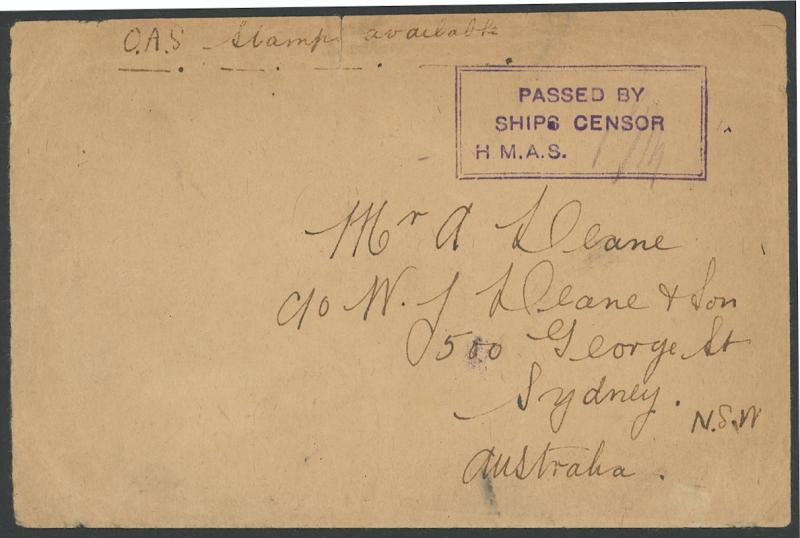 O.A.S Stamp available
PASSED BY
SHIPS CENSOR
H.M.A.S.
Mr A Deane
c/o W. J Deane & Son
500 George St
Sydney.
N.S.W
Australia.